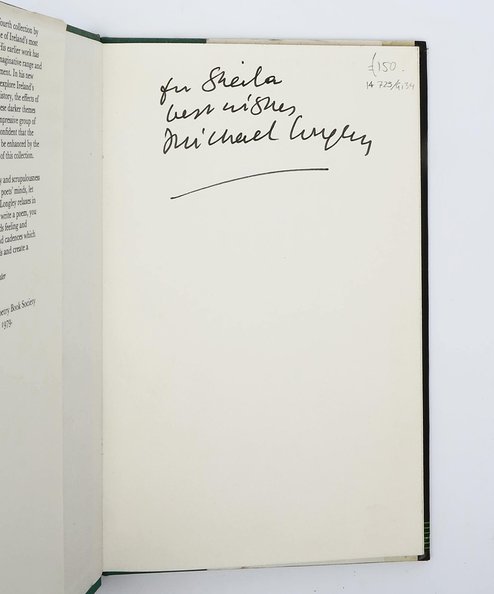 fourth collection by
e of Ireland's most
His earlier work has
imaginative range and
ment. In his new
explore Ireland's
history, the effects of
these darker themes
impressive group of
confident that the
be enhanced by the
of this collection.
y and scrupulousness
poets' minds, let
Longley relaxes in
write a poem, you
ds feeling and
d cadences which
s and create a
oetry Book Society
1979.
for Sheila
best wishes
Michael Longley
£150.